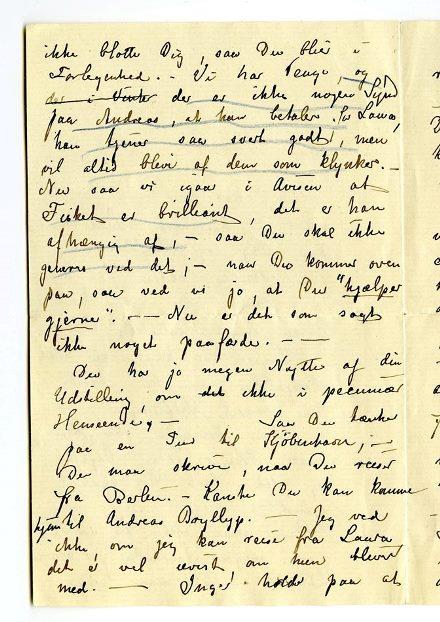 ikke blotte Dig, saa Du blir i
Forlegenhed. - Vi har Penge, og
der i Vinter der er ikke nogen Synd
paa Andreas, at han betaler. Sr Laura,
han tjener saa svært godt, men
vil altid blive af dem som klynker. -
Nu saa vi igaar i Avisen at
Fisket er brilliant, det er han
afhængig af, - saa Du skal ikke
genere ved det; - naar Du kommer oven
paa, saa ved vi jo, at Du "hjælper
gjerne". - - Nu er det som sagt
ikke noget paafærde. - -
Du har jo megen Nytte af din
Udstilling, om det ikke i pecuniær
Henseende, - Saa Du tænker
paa en Tur til Kjöbenhavn; -
Du maa skrive, naar Du reiser
fra Berlin. - Kanske Du kan komme
hjem til Andreas Bryllyp. - Jeg ved
ikke, om jeg kan reise fra Laura
det er vel uvist om hun bliver
med. - Inger holdt paa at